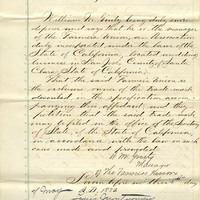 William M. Ginty being duly sworn
deposes and says that he is the manager
of the Farmers Union, an association
duly incorporated under the laws of the
State of California, located and doing
business in San José, County of Santa
Clara, State of California.
That the said Farmers Union is
the exclusive owner of the trade mark
described in the specification accom-
panying this affidavit, and they
petition that the said trade mark
may be filed in the office of the Secretary
of State, of the State of California,
in accordance with the law in such
case made and provided.
W. M. Ginty
Manager
of The Farmers Union
Sworn before me this day
of May A.D. 1876